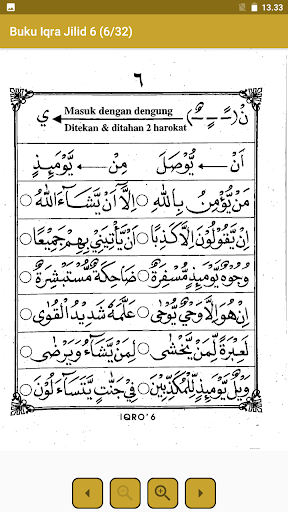 13.33
Buku Iqra Jilid 6 (6/32)
٦
نْ (ـًـ ـٍـ ـٌـ) ← ي
Masuk dengan dengung
Ditekan & ditahan 2 harokat
اَنْ يُّوْصَلَ ← مِنْ يَّوْمَئِذٍ
مَنْ يُّؤْمِنُ بِاللّٰهِ ○ اِلَّآ اَنْ يَّشَآءَ اللّٰهُ
اِنْ يَّقُوْلُوْنَ اِلَّا كَذِبًا ○ اَنْ يَّأْتِيَنِيْ بِهِمْ جَمِيْعًا
وُجُوْهٌ يَّوْمَئِذٍ مُّسْفِرَةٌ ○ ضَاحِكَةٌ مُّسْتَبْشِرَةٌ ○
اِنْ هُوَ اِلَّا وَحْيٌ يُّوْحٰى ○ عَلَّمَهٗ شَدِيْدُ الْقُوٰى ○
لَعِبْرَةً لِّمَنْ يَّخْشٰى ○ لِمَنْ يَّشَآءُ وَيَرْضٰى ○
وَيْلٌ يَّوْمَئِذٍ لِّلْمُكَذِّبِيْنَ ○ فِيْ جَنّٰتٍ يَّتَسَآءَلُوْنَ ○
IQRO' 6